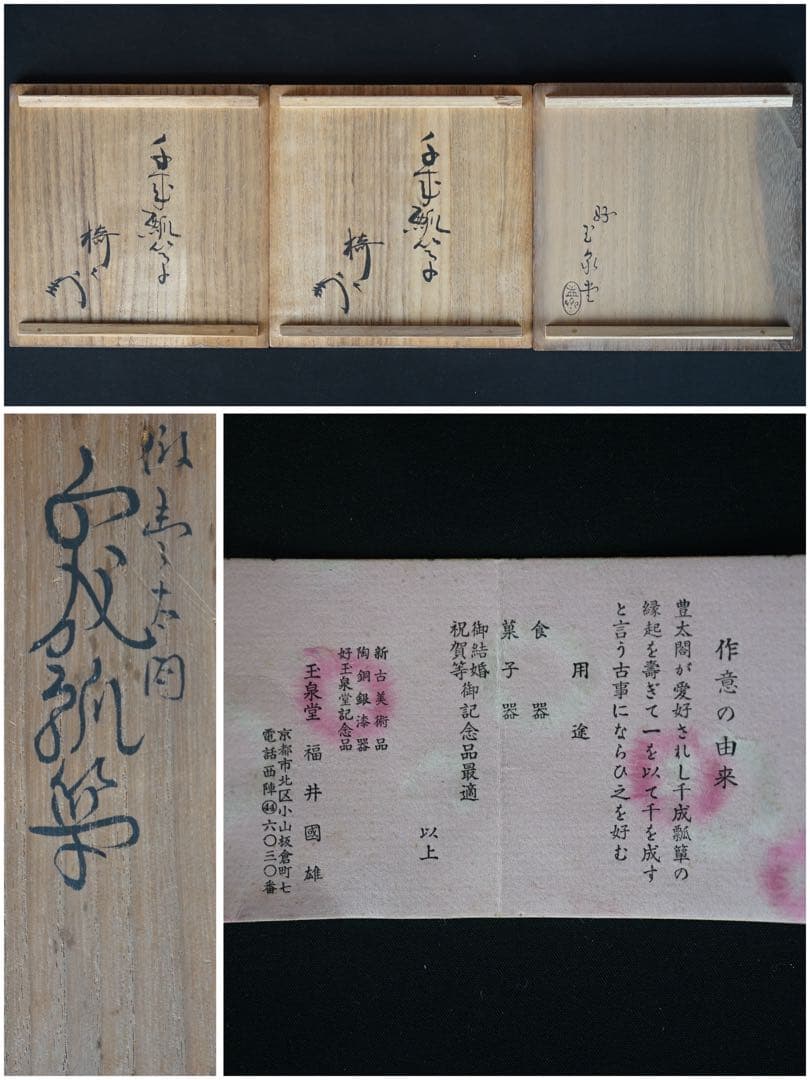 千成瓢箪
椅
千成瓢箪
椅
好
玉泉堂
太閤
千成瓢箪
作意の由来
豊太閤が愛好されし千成瓢簞の
縁起を壽ぎて一を以て千を成す
と言う古事にならひ之を好む
用途
食器
菓子器
御結婚御記念品最適
祝賀等
以上
新古美術品
陶銅銀漆器
好玉泉堂記念品
玉泉堂 福井國雄
京都市北区小山板倉町七
電話西陣㊹六〇三〇番